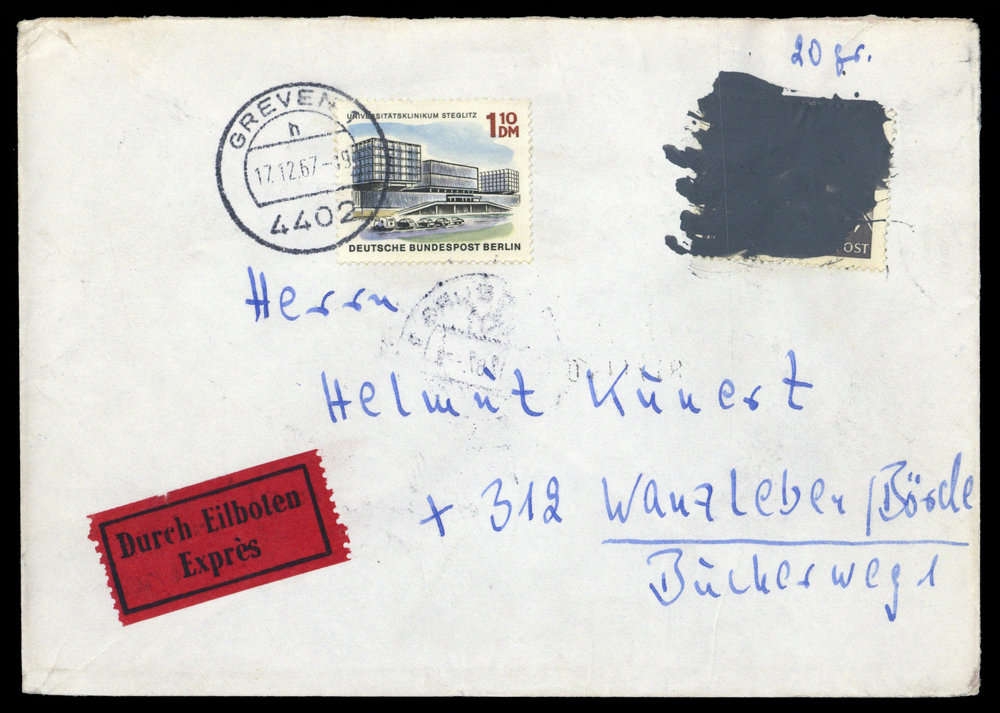 20 gr.
GREVEN 1
h
17.12.67-19
4402
UNIVERSITÄTSKLINIKUM STEGLITZ
1 10 DM
DEUTSCHE BUNDESPOST BERLIN
OST
Herrn
Helmut Kunert
Durch Eilboten
Exprès
+ 312 Wanzleben/Börde
Buckerweg 1